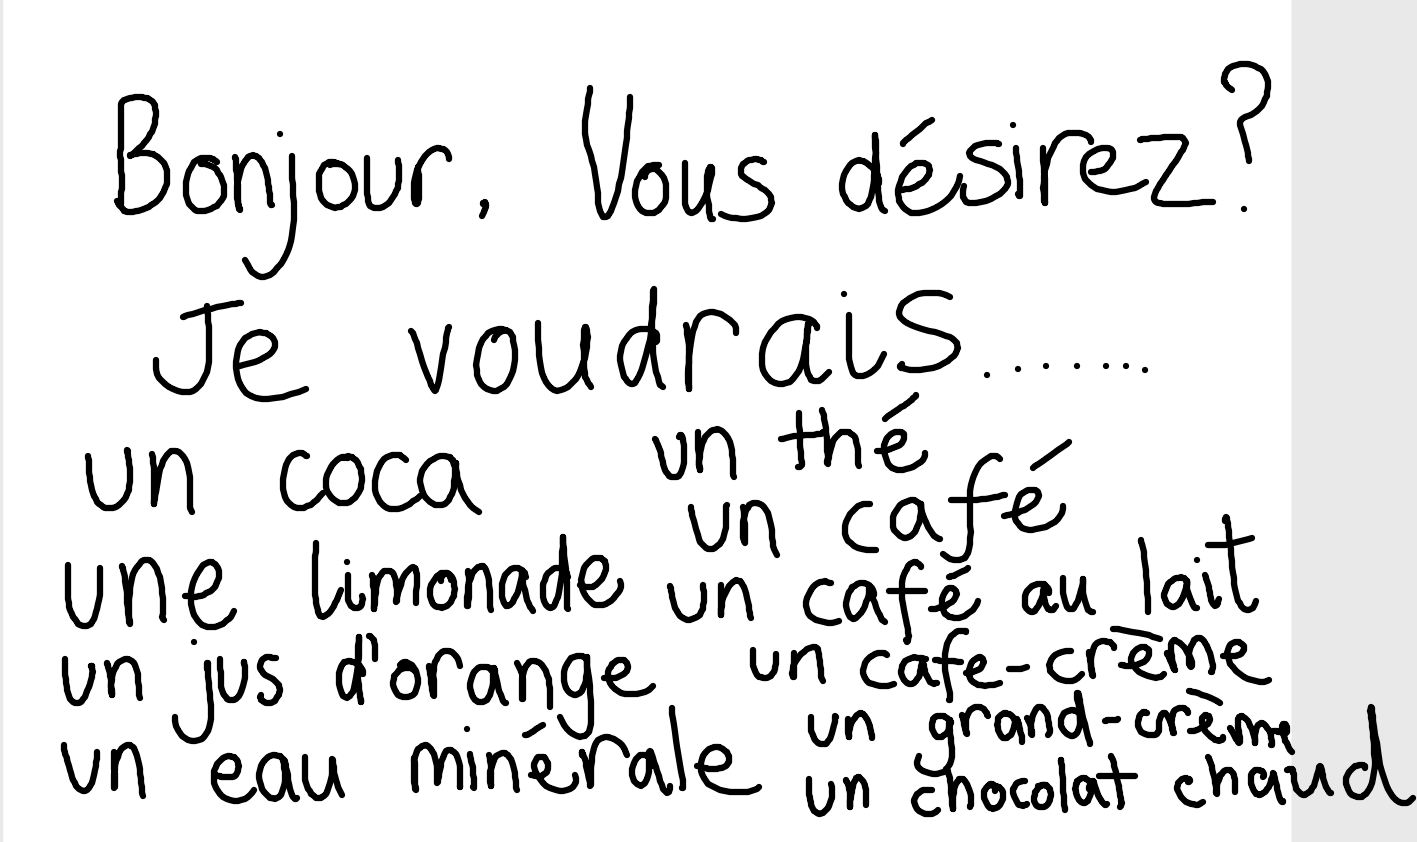 Bonjour, Vous désirez?
Je voudrais.......
un coca
une limonade
un jus d'orange
un eau minérale
un thé
un café
un café au lait
un cafe-crème
un grand-crème
un chocolat chaud